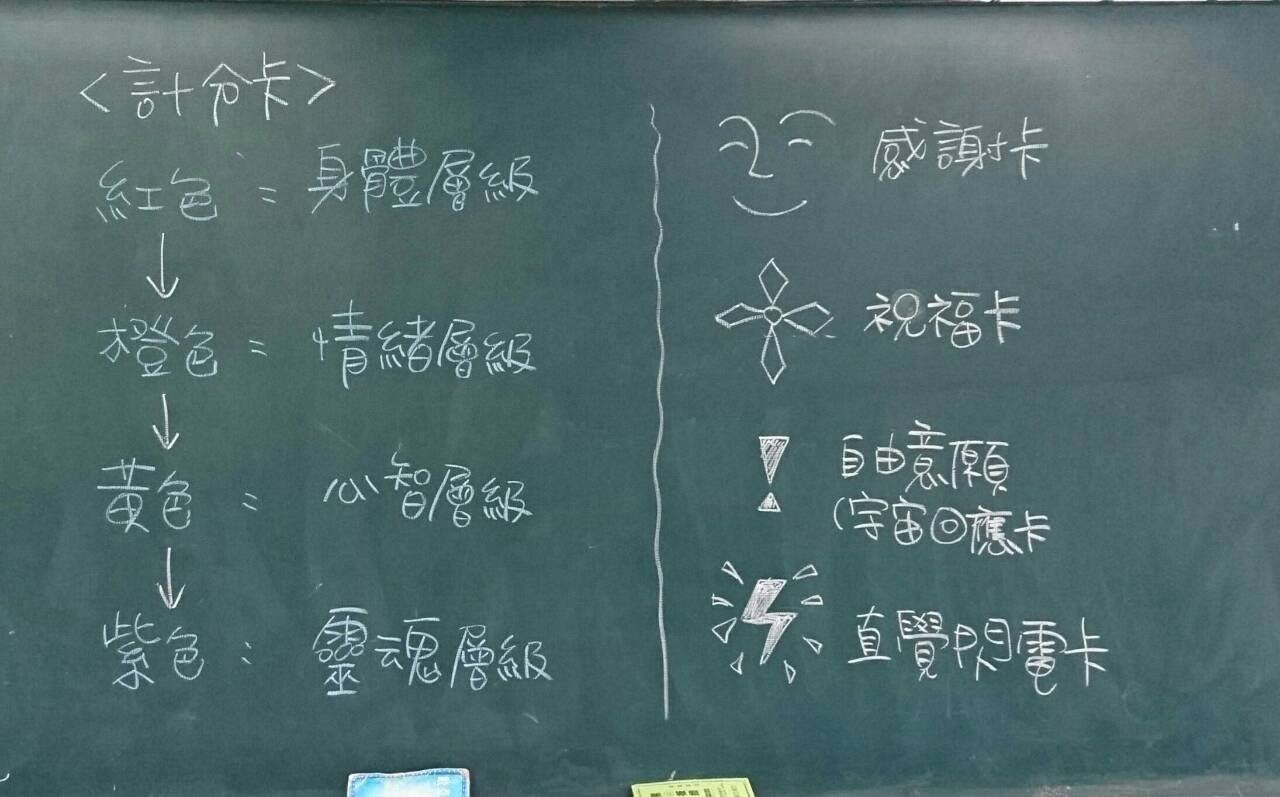 <計分卡>
紅色 = 身體層級
橙色 = 情緒層級
黃色 = 心智層級
紫色 = 靈魂層級
感謝卡
祝福卡
自由意願
(宇宙回應卡
直覺閃電卡